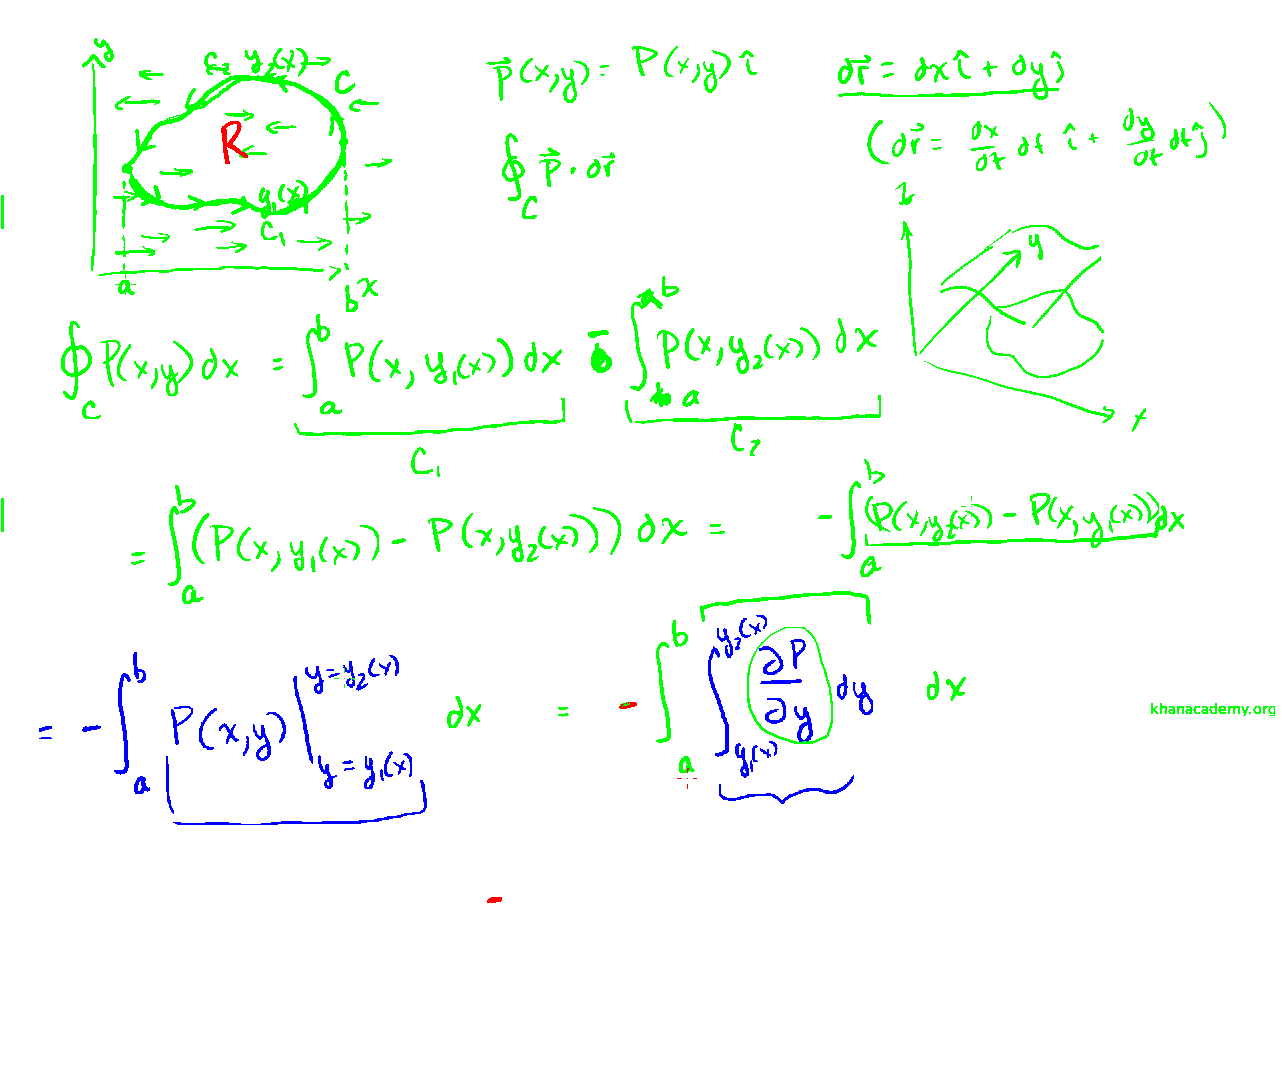 y
C₂ y₂(x)
C
R
y₁(x)
C₁
a
b x
p⃗(x,y) = P(x,y) î
dr⃗ = dx î + dy ĵ
∮_C p⃗ · dr⃗
(dr⃗ = dx/dt dt î + dy/dt dt ĵ)
z
y
x
∮_C P(x,y) dx = ∫_a^b P(x, y₁(x)) dx - ∫_a^b P(x, y₂(x)) dx
C₁
C₂
= ∫_a^b (P(x, y₁(x)) - P(x, y₂(x))) dx = - ∫_a^b (P(x,y₂(x)) - P(x,y₁(x))) dx
= - ∫_a^b P(x,y) |_{y = y₁(x)}^{y = y₂(x)} dx = - ∫_a^b ∫_{y₁(x)}^{y₂(x)} ∂P/∂y dy dx
khanacademy.org
-